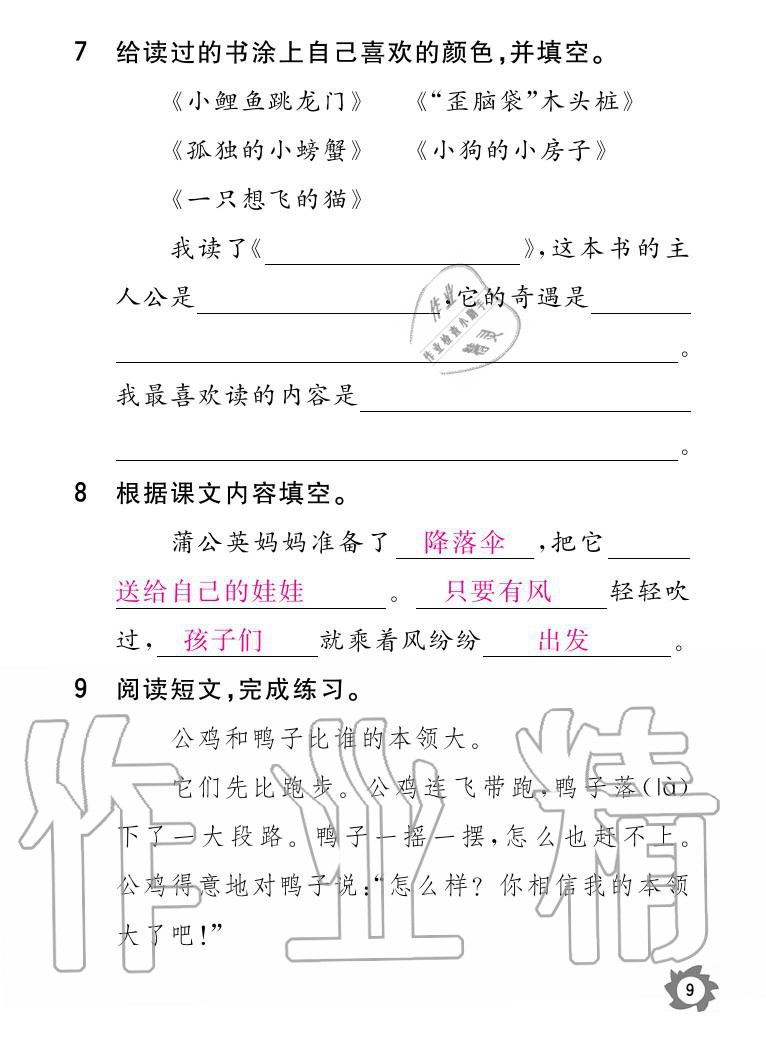 7 给读过的书涂上自己喜欢的颜色，并填空。
《小鲤鱼跳龙门》 《“歪脑袋”木头桩》
《孤独的小螃蟹》 《小狗的小房子》
《一只想飞的猫》
我读了《________》，这本书的主
人公是________，它的奇遇是________
________。
我最喜欢读的内容是________
________。
8 根据课文内容填空。
蒲公英妈妈准备了 降落伞 ，把它
送给自己的娃娃 。 只要有风 轻轻吹
过， 孩子们 就乘着风纷纷 出发 。
9 阅读短文，完成练习。
公鸡和鸭子比谁的本领大。
它们先比跑步。公鸡连飞带跑，鸭子落（là）
下了一大段路。鸭子一摇一摆，怎么也赶不上。
公鸡得意地对鸭子说：“怎么样？你相信我的本领
大了吧！”
9
作业
作业检查小助手
精灵
作业精